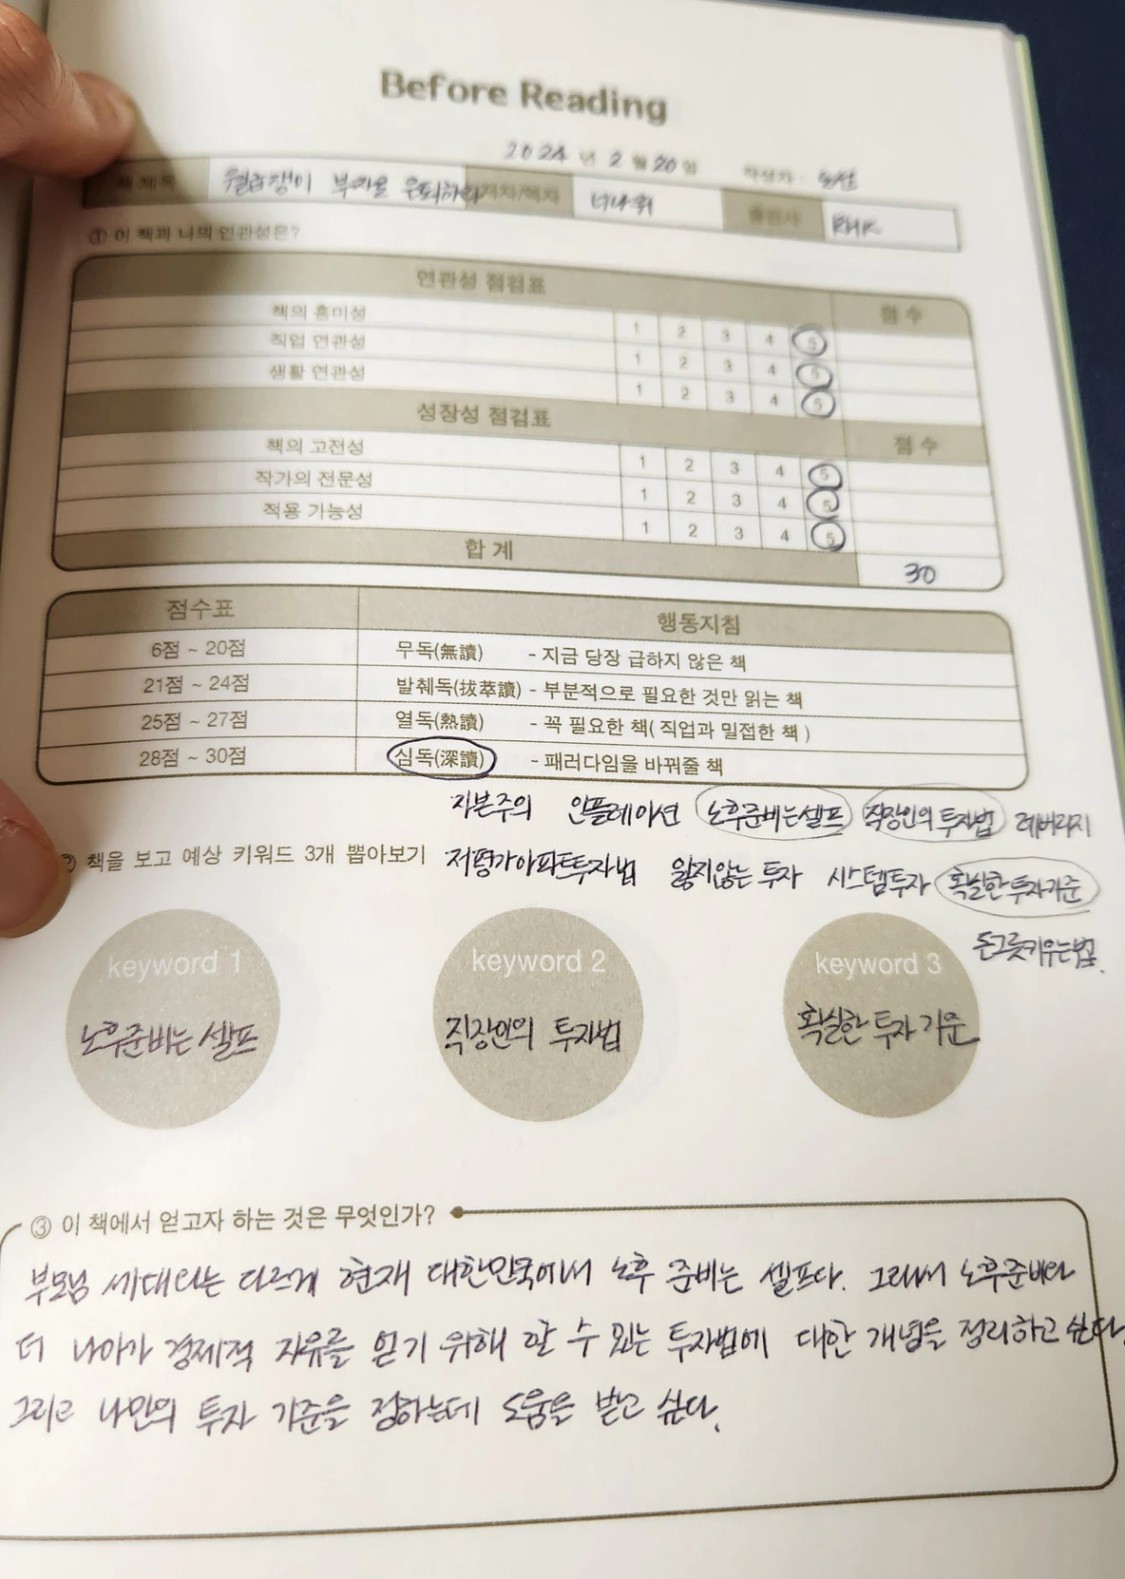 Before Reading
2024 년 2 월 20 일 작성자 :
책제목 월급쟁이 부자로 은퇴하라 저자/역자 너나위 출판사 RHK
① 이 책과 나의 연관성은?
연관성 점검표 점수
책의 흥미성 1 2 3 4 5
직업 연관성 1 2 3 4 5
생활 연관성 1 2 3 4 5
성장성 점검표 점수
책의 고전성 1 2 3 4 5
작가의 전문성 1 2 3 4 5
적용 가능성 1 2 3 4 5
합계 30
점수표 행동지침
6점 ~ 20점 무독(無讀) - 지금 당장 급하지 않은 책
21점 ~ 24점 발췌독(拔萃讀) - 부분적으로 필요한 것만 읽는 책
25점 ~ 27점 열독(熱讀) - 꼭 필요한 책( 직업과 밀접한 책 )
28점 ~ 30점 심독(深讀) - 패러다임을 바꿔줄 책
자본주의 인플레이션 노후준비는셀프 직장인의 투자법 레버리지
② 책을 보고 예상 키워드 3개 뽑아보기 저평가아파트투자법 잃지않는 투자 시스템투자 확실한투자기준
돈그릇키우는법.
keyword 1 keyword 2 keyword 3
노후준비는 셀프 직장인의 투자법 확실한 투자 기준
③ 이 책에서 얻고자 하는 것은 무엇인가?
부모님 세대와는 다르게 현재 대한민국에서 노후 준비는 셀프다. 그래서 노후준비와
더 나아가 경제적 자유를 얻기 위해 할 수 있는 투자법에 대한 개념을 정리하고 싶다.
그리고 나만의 투자 기준을 정하는데 도움을 받고 싶다.